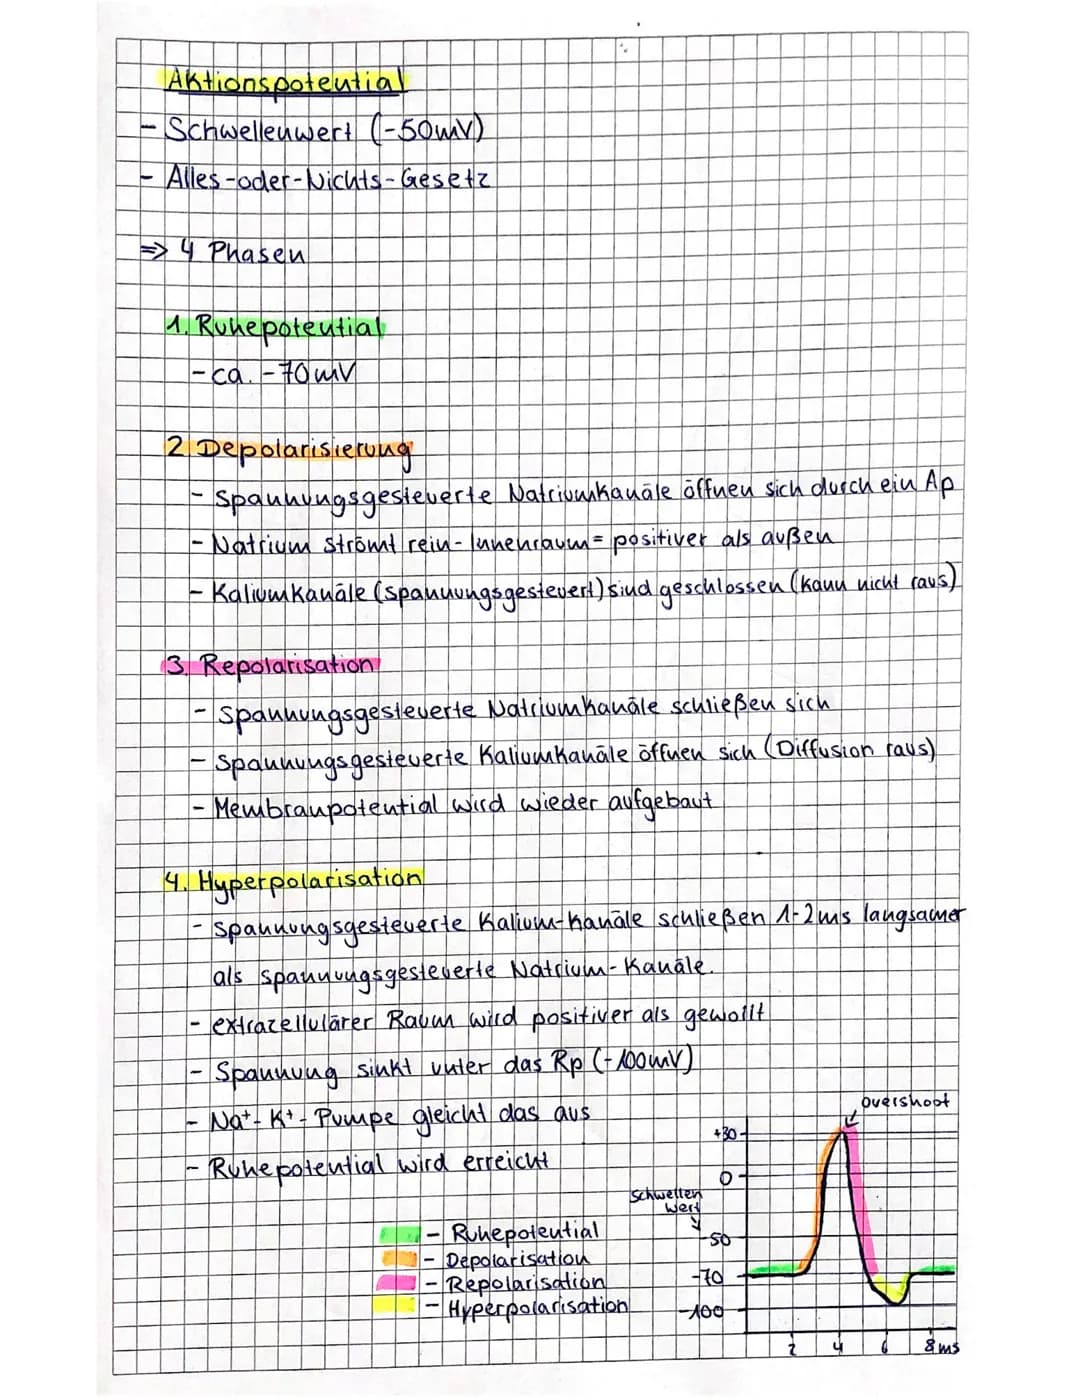 Aktionspotential
- Schwellenwert (-50mV)
- Alles-oder-Nichts-Gesetz
=> 4 Phasen
1. Ruhepotential
- ca. -70mV
2 Depolarisierung
- Spannungsgesteuerte Natriumkanäle öffnen sich durch ein Ap
- Natrium strömt rein - Innenraum = positiver als außen
- Kaliumkanäle (spannungsgesteuert) sind geschlossen (kann nicht raus)
3. Repolarisation
- Spannungsgesteuerte Natriumkanäle schließen sich
- Spannungsgesteuerte Kaliumkanäle öffnen sich (Diffusion raus)
- Membranpotential wird wieder aufgebaut
4. Hyperpolarisation
- Spannungsgesteuerte Kalium-Kanäle schließen 1-2ms langsamer
als spannungsgesteuerte Natrium-Kanäle.
- extrazellulärer Raum wird positiver als gewollt
- Spannung sinkt unter das Rp (-100mV)
- Na+-K+-Pumpe gleicht das aus
- Ruhepotential wird erreicht
- Ruhepotential
- Depolarisation
- Repolarisation
- Hyperpolarisation
overshoot
+30
0
Schwellen
wert
-50
-70
-100
2 4 6 8 ms